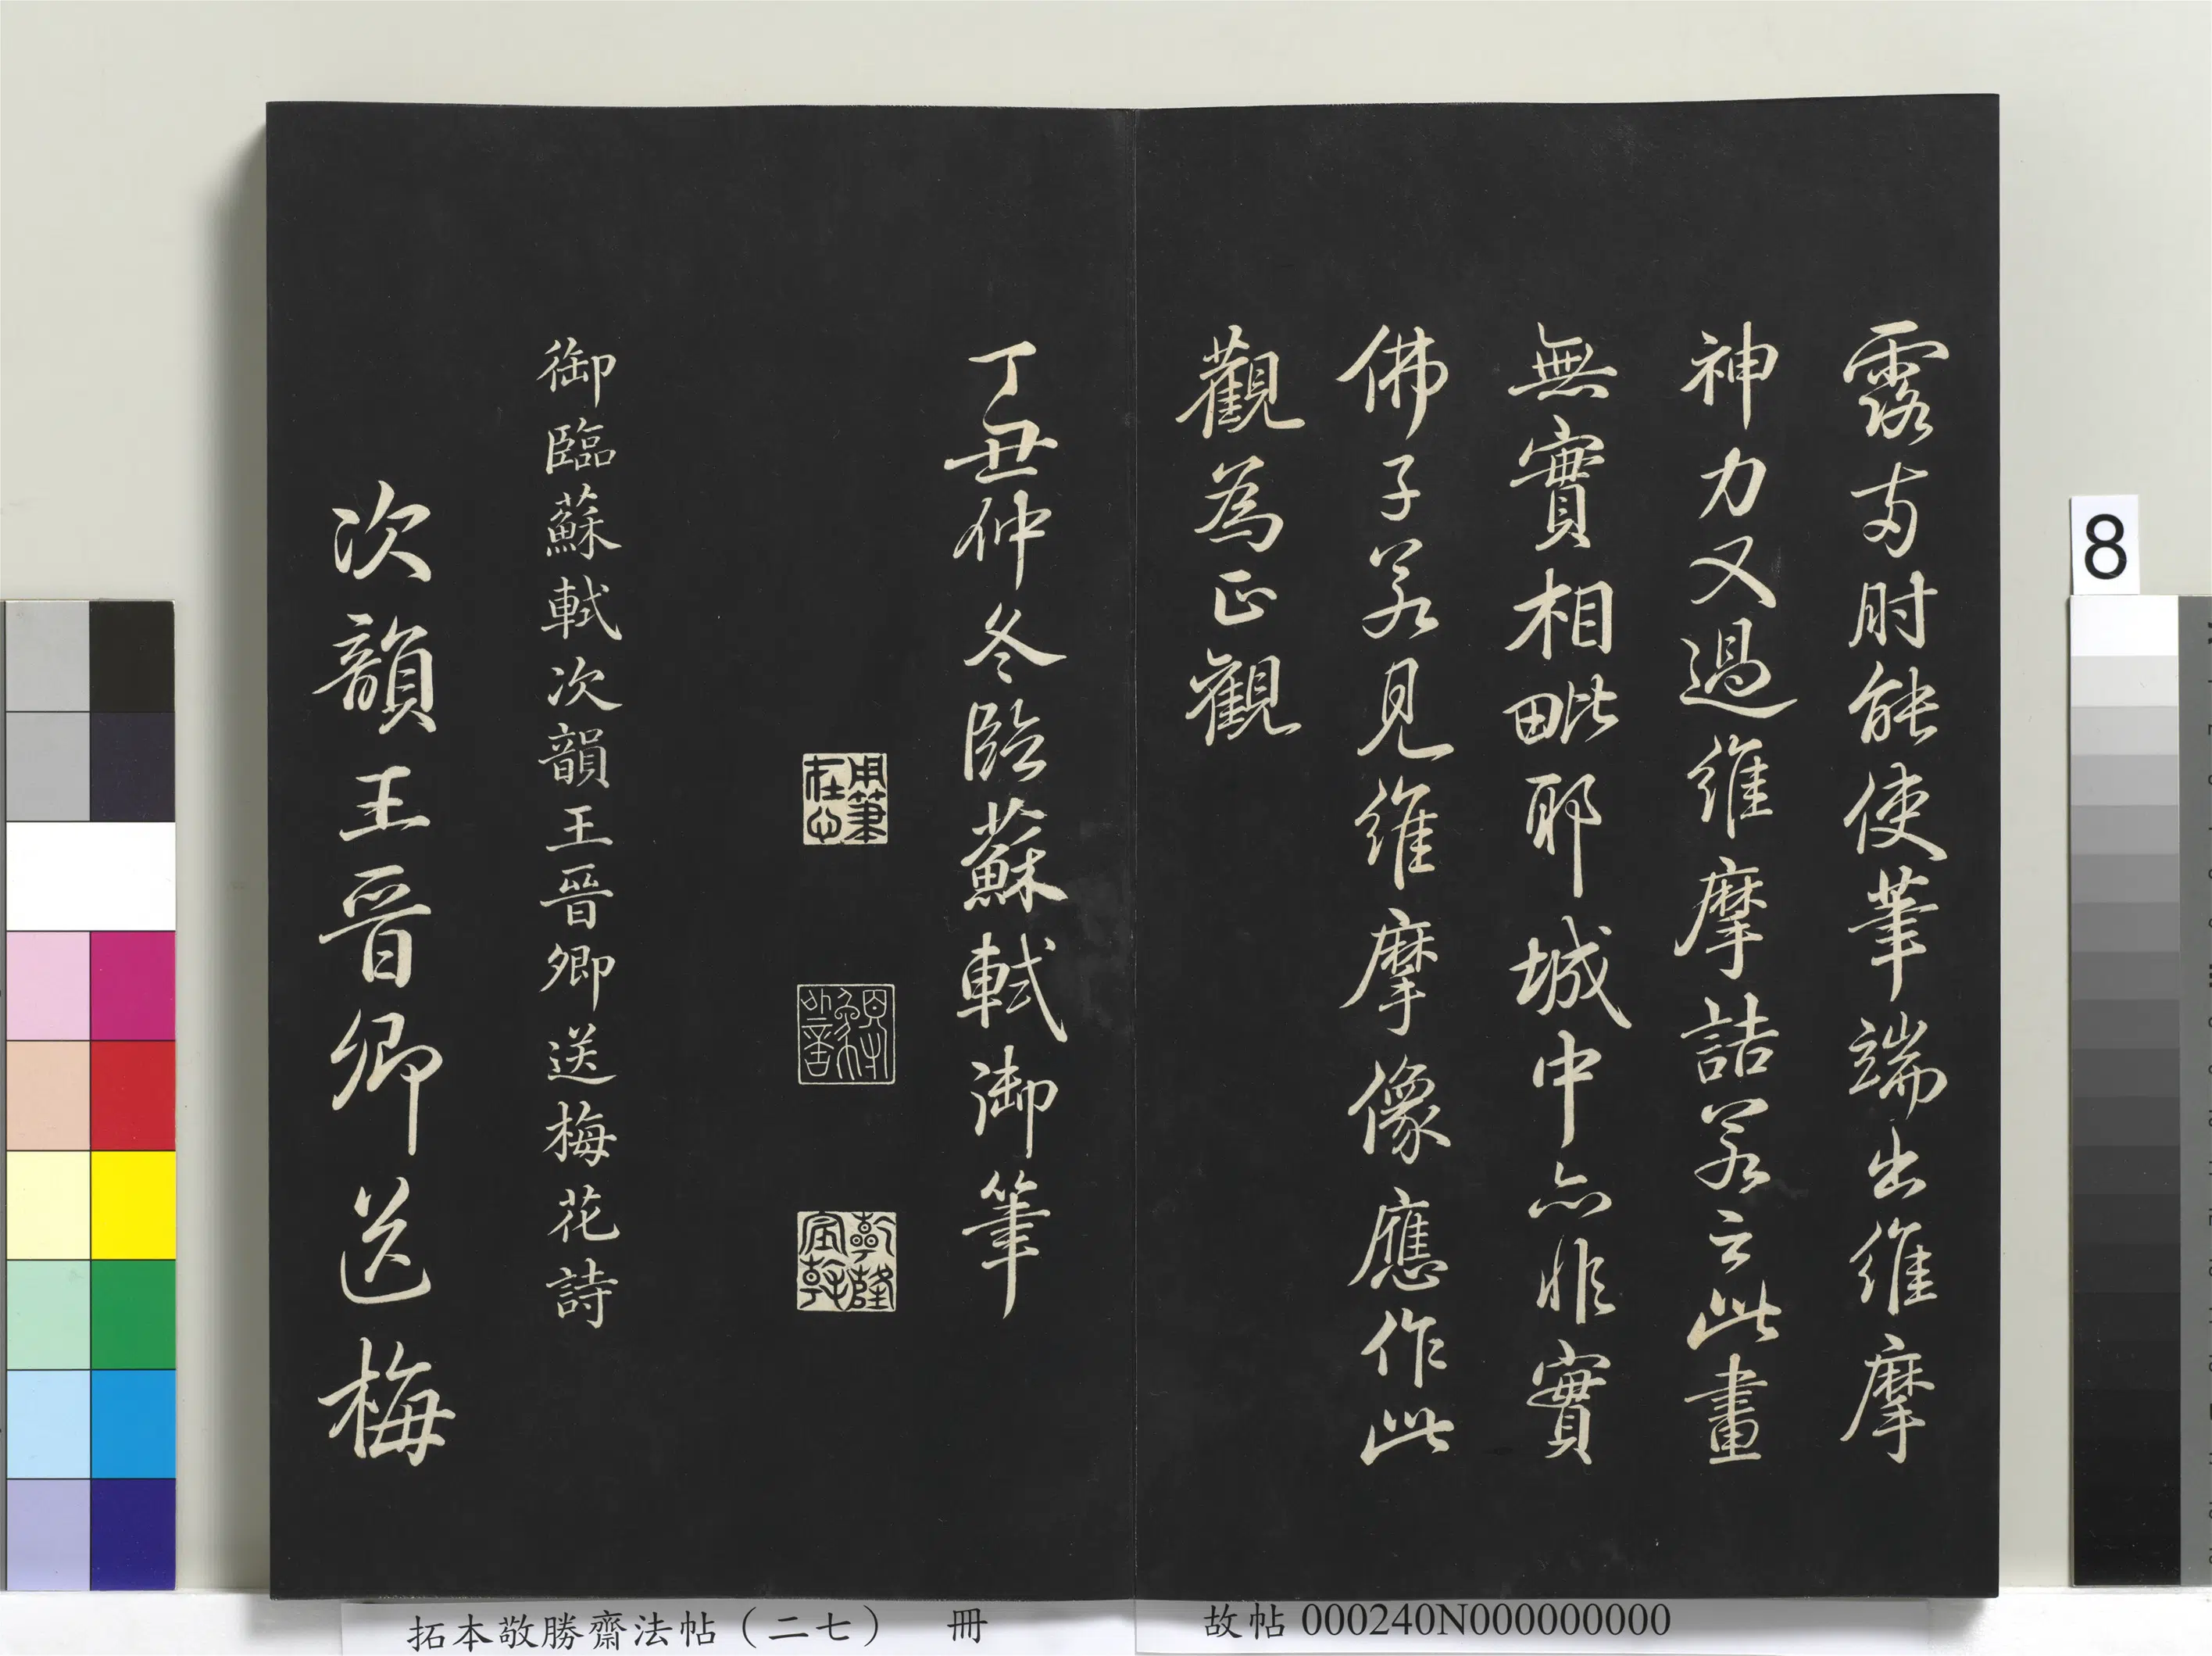 露兩肘能使筆端出維摩
神力又過維摩詰若云此畫
無實相毗耶城中亦非實
佛子若見維摩像應作此
觀為正觀
丁丑仲冬臨蘇軾御筆
用筆在心
乾隆宸翰
御臨蘇軾次韻王晉卿送梅花詩
次韻王晉卿送梅
8
拓本敬勝齋法帖（二七） 冊
故帖 000240N000000000